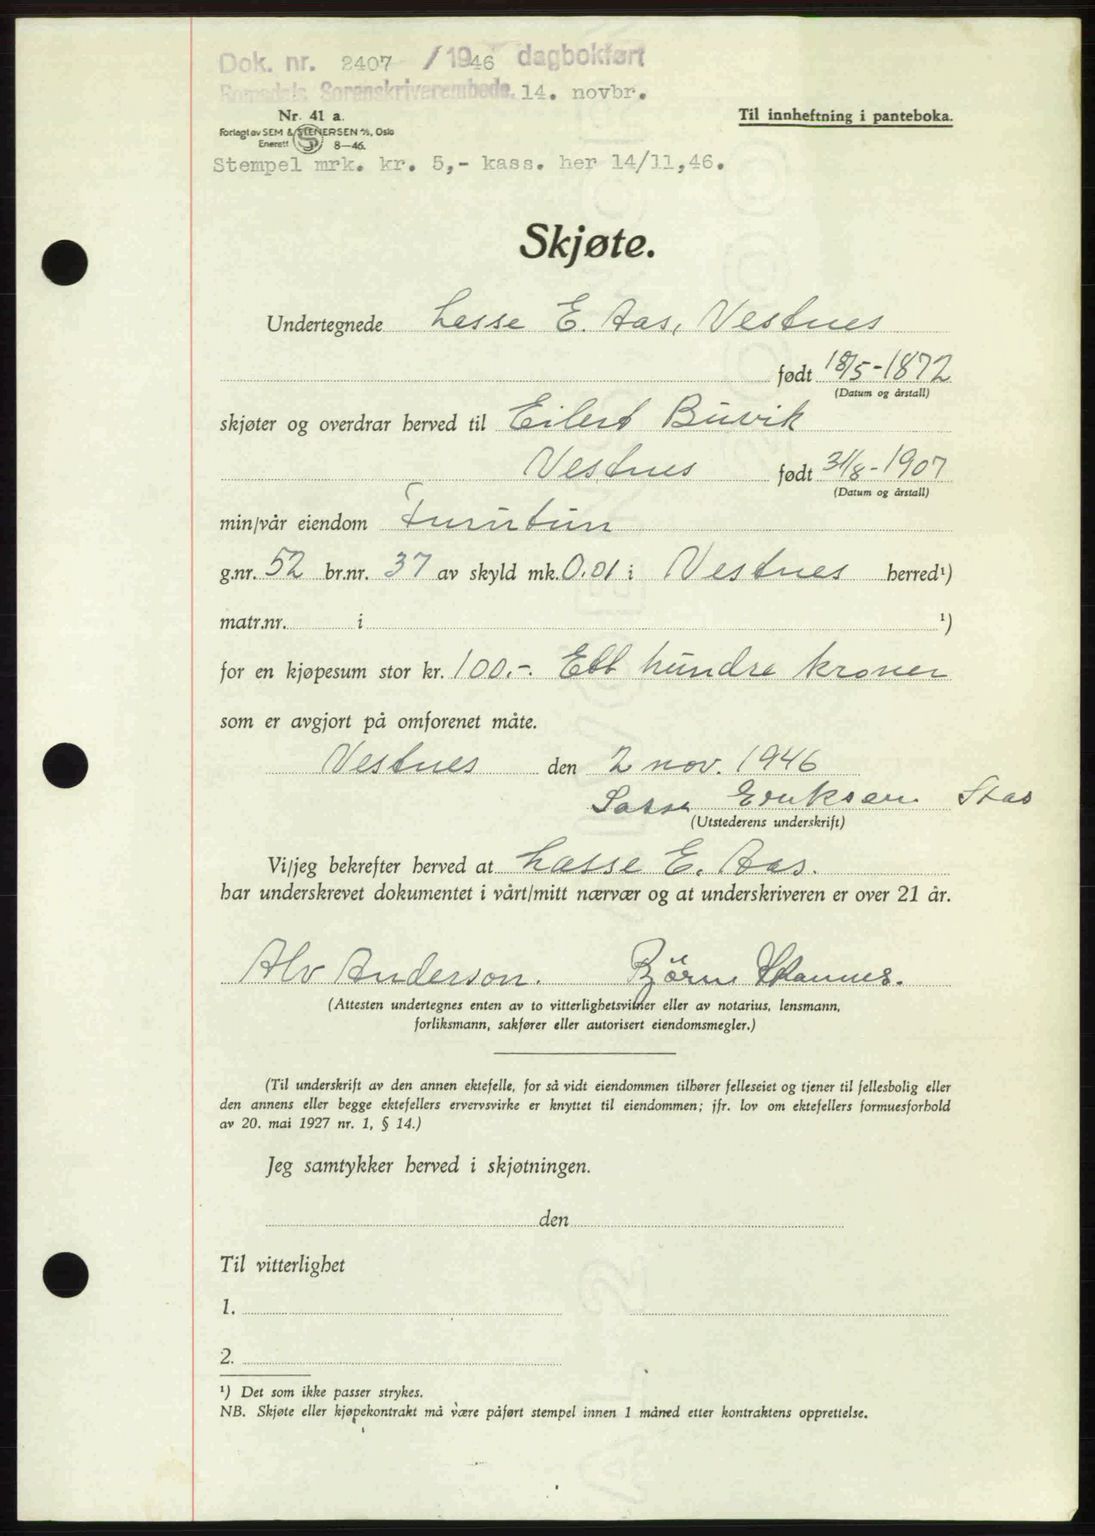 Dok. nr. 2407 / 1946 dagbokført
Romsdals Sorenskriverembede. 14. novbr.
Nr. 41 a.
Til innheftning i panteboka.
Forlagt av SEM & STENERSEN A/S, Oslo
Enerett 8—46.
Stempel mrk. kr. 5,- kass. her 14/11,46.
Skjøte.
Undertegnede Lasse E. Aas, Vestnes
født 18/5-1872
(Datum og årstall)
skjøter og overdrar herved til Eilert Buvik
Vestnes født 31/8-1907
(Datum og årstall)
min/vår eiendom Furutun
g.nr. 52 br.nr. 37 av skyld mk. 0.01 i Vestnes herred¹)
matr.nr. i ¹)
for en kjøpesum stor kr. 100.-. Ett hundre kroner
som er avgjort på omforenet måte.
Vestnes den 2 nov. 1946
Lasse Eriksen
(Utstederens underskrift)
Vi/jeg bekrefter herved at Lasse E. Aas.
har underskrevet dokumentet i vårt/mitt nærvær og at underskriveren er over 21 år.
Alv Anderson. Björn
(Attesten undertegnes enten av to vitterlighetsvitner eller av notarius, lensmann,
forliksmann, sakfører eller autorisert eiendomsmegler.)
(Til underskrift av den annen ektefelle, for så vidt eiendommen tilhører felleseiet og tjener til fellesbolig eller
den annens eller begge ektefellers ervervsvirke er knyttet til eiendommen; jfr. lov om ektefellers formuesforhold
av 20. mai 1927 nr. 1, § 14.)
Jeg samtykker herved i skjøtningen.
den
Til vitterlighet
1.
2.
¹) Det som ikke passer strykes.
NB. Skjøte eller kjøpekontrakt må være påført stempel innen 1 måned etter kontraktens opprettelse.